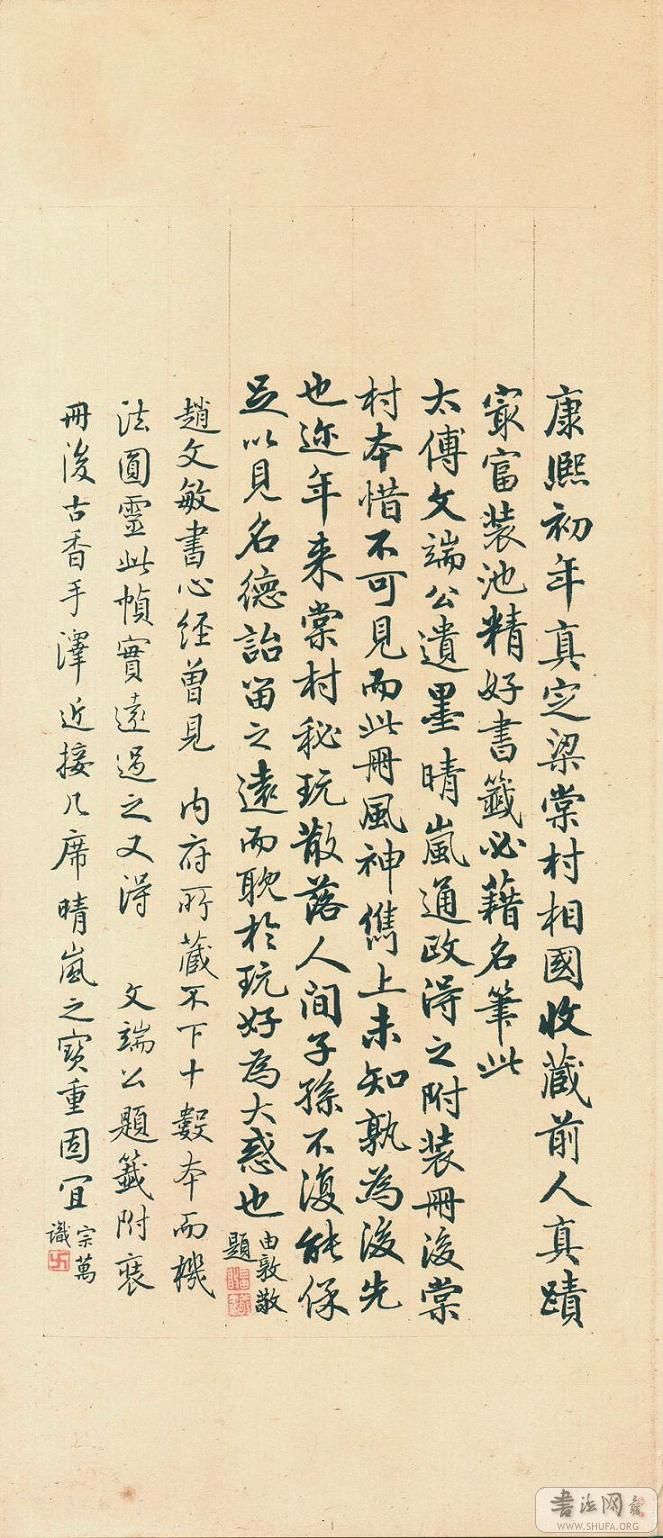 康熙初年真定梁棠村相國收藏前人真蹟
冣富装池精好書籤必藉名筆此
太傅文端公遺墨晴嵐通政淂之附装冊後棠
村本惜不可見而此冊風神儁上未知孰為後先
也迩年来棠村秘玩散落人间子孫不復能保
足以見名德詒留之遠而耽於玩好為大惑也
由敦敬
題
趙文敏書心經曾見 内府所藏不下十數本而機
法圓靈此幀實遠過之又淂 文端公題籤附裝
冊後古香手澤近接几席晴嵐之寶重固宜
宗萬
識
書法网
WWW.SHUFA.ORG